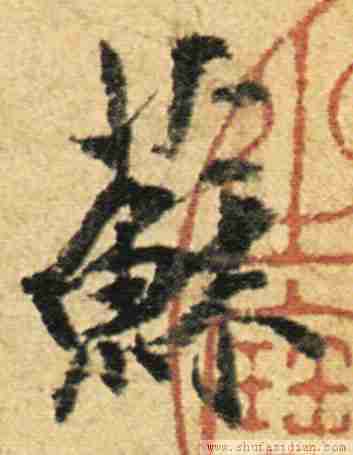 蘇
www.shufazidian.com